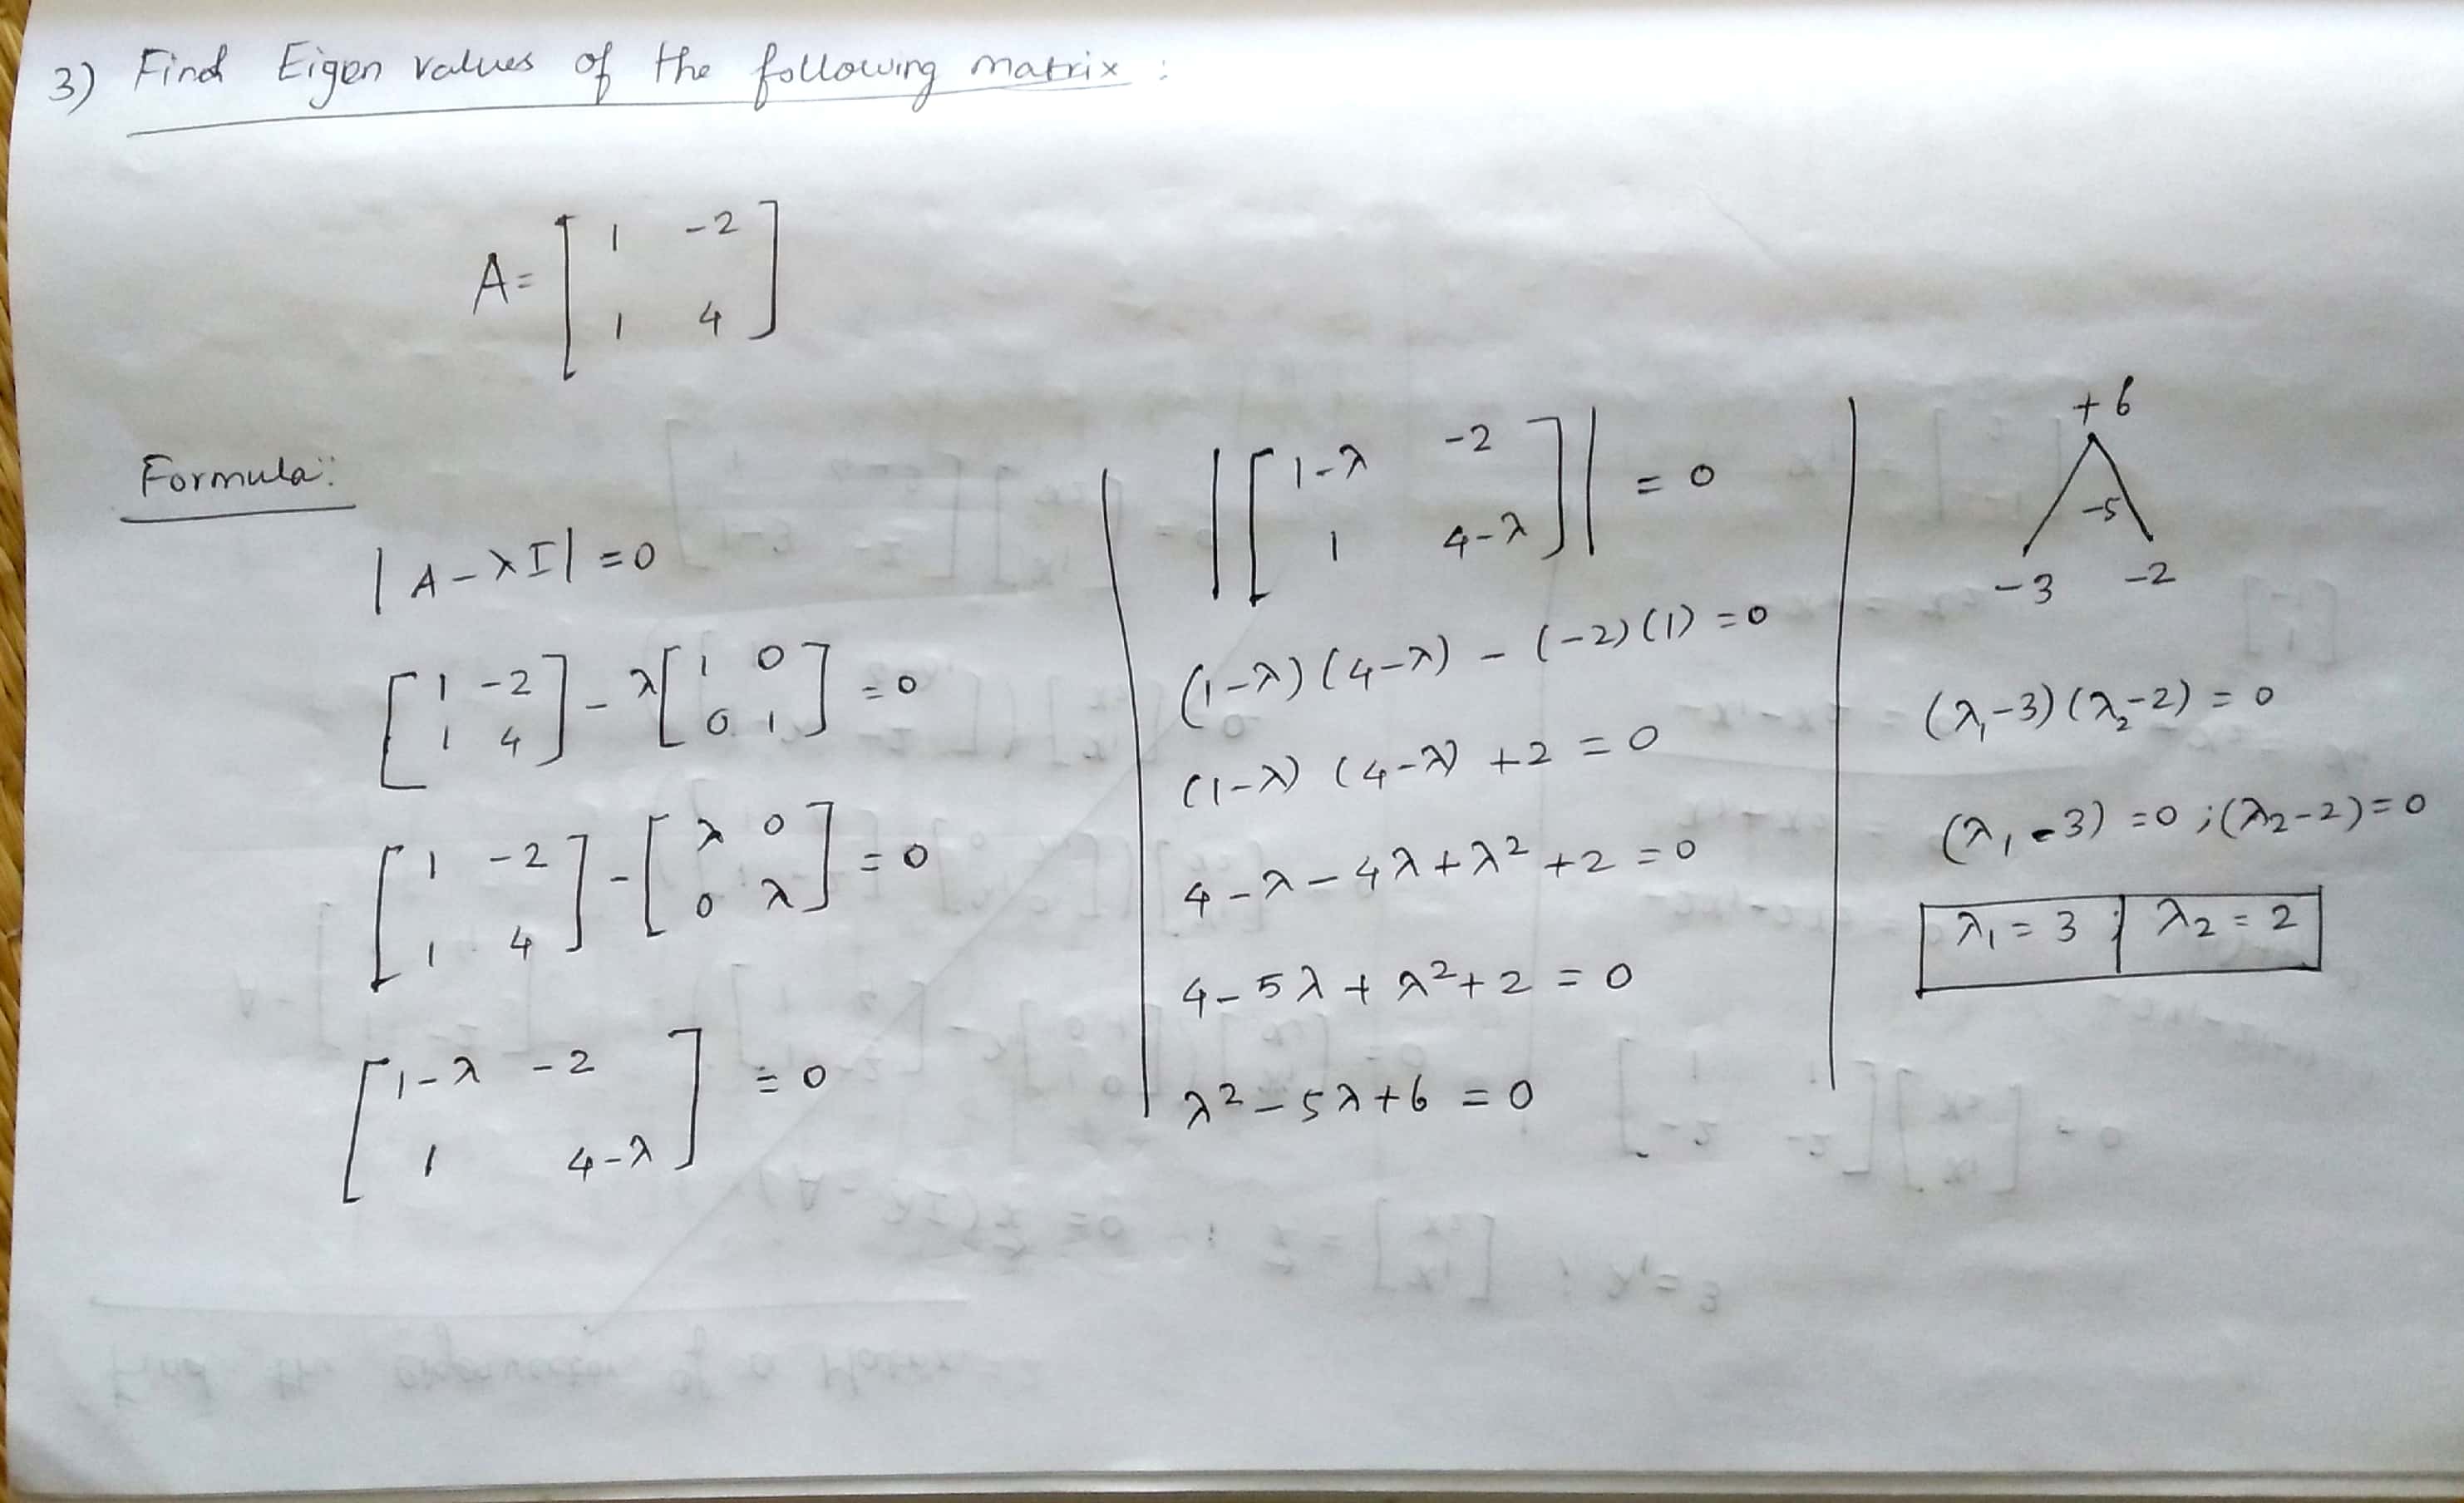 3) Find Eigen values of the following matrix :
A = [ 1 -2
1 4 ]
Formula:
|A-λI| = 0
[ 1 -2
1 4 ] - λ [ 1 0
0 1 ] = 0
[ 1 -2
1 4 ] - [ λ 0
0 λ ] = 0
[ 1-λ -2
1 4-λ ] = 0
| [ 1-λ -2
1 4-λ ] | = 0
(1-λ)(4-λ) - (-2)(1) = 0
(1-λ) (4-λ) +2 = 0
4-λ-4λ+λ²+2 = 0
4-5λ+λ²+2 = 0
λ²-5λ+6 = 0
+6
-5
-3 -2
(λ₁-3)(λ₂-2) = 0
(λ₁-3) = 0 ; (λ₂-2) = 0
λ₁ = 3 ; λ₂ = 2